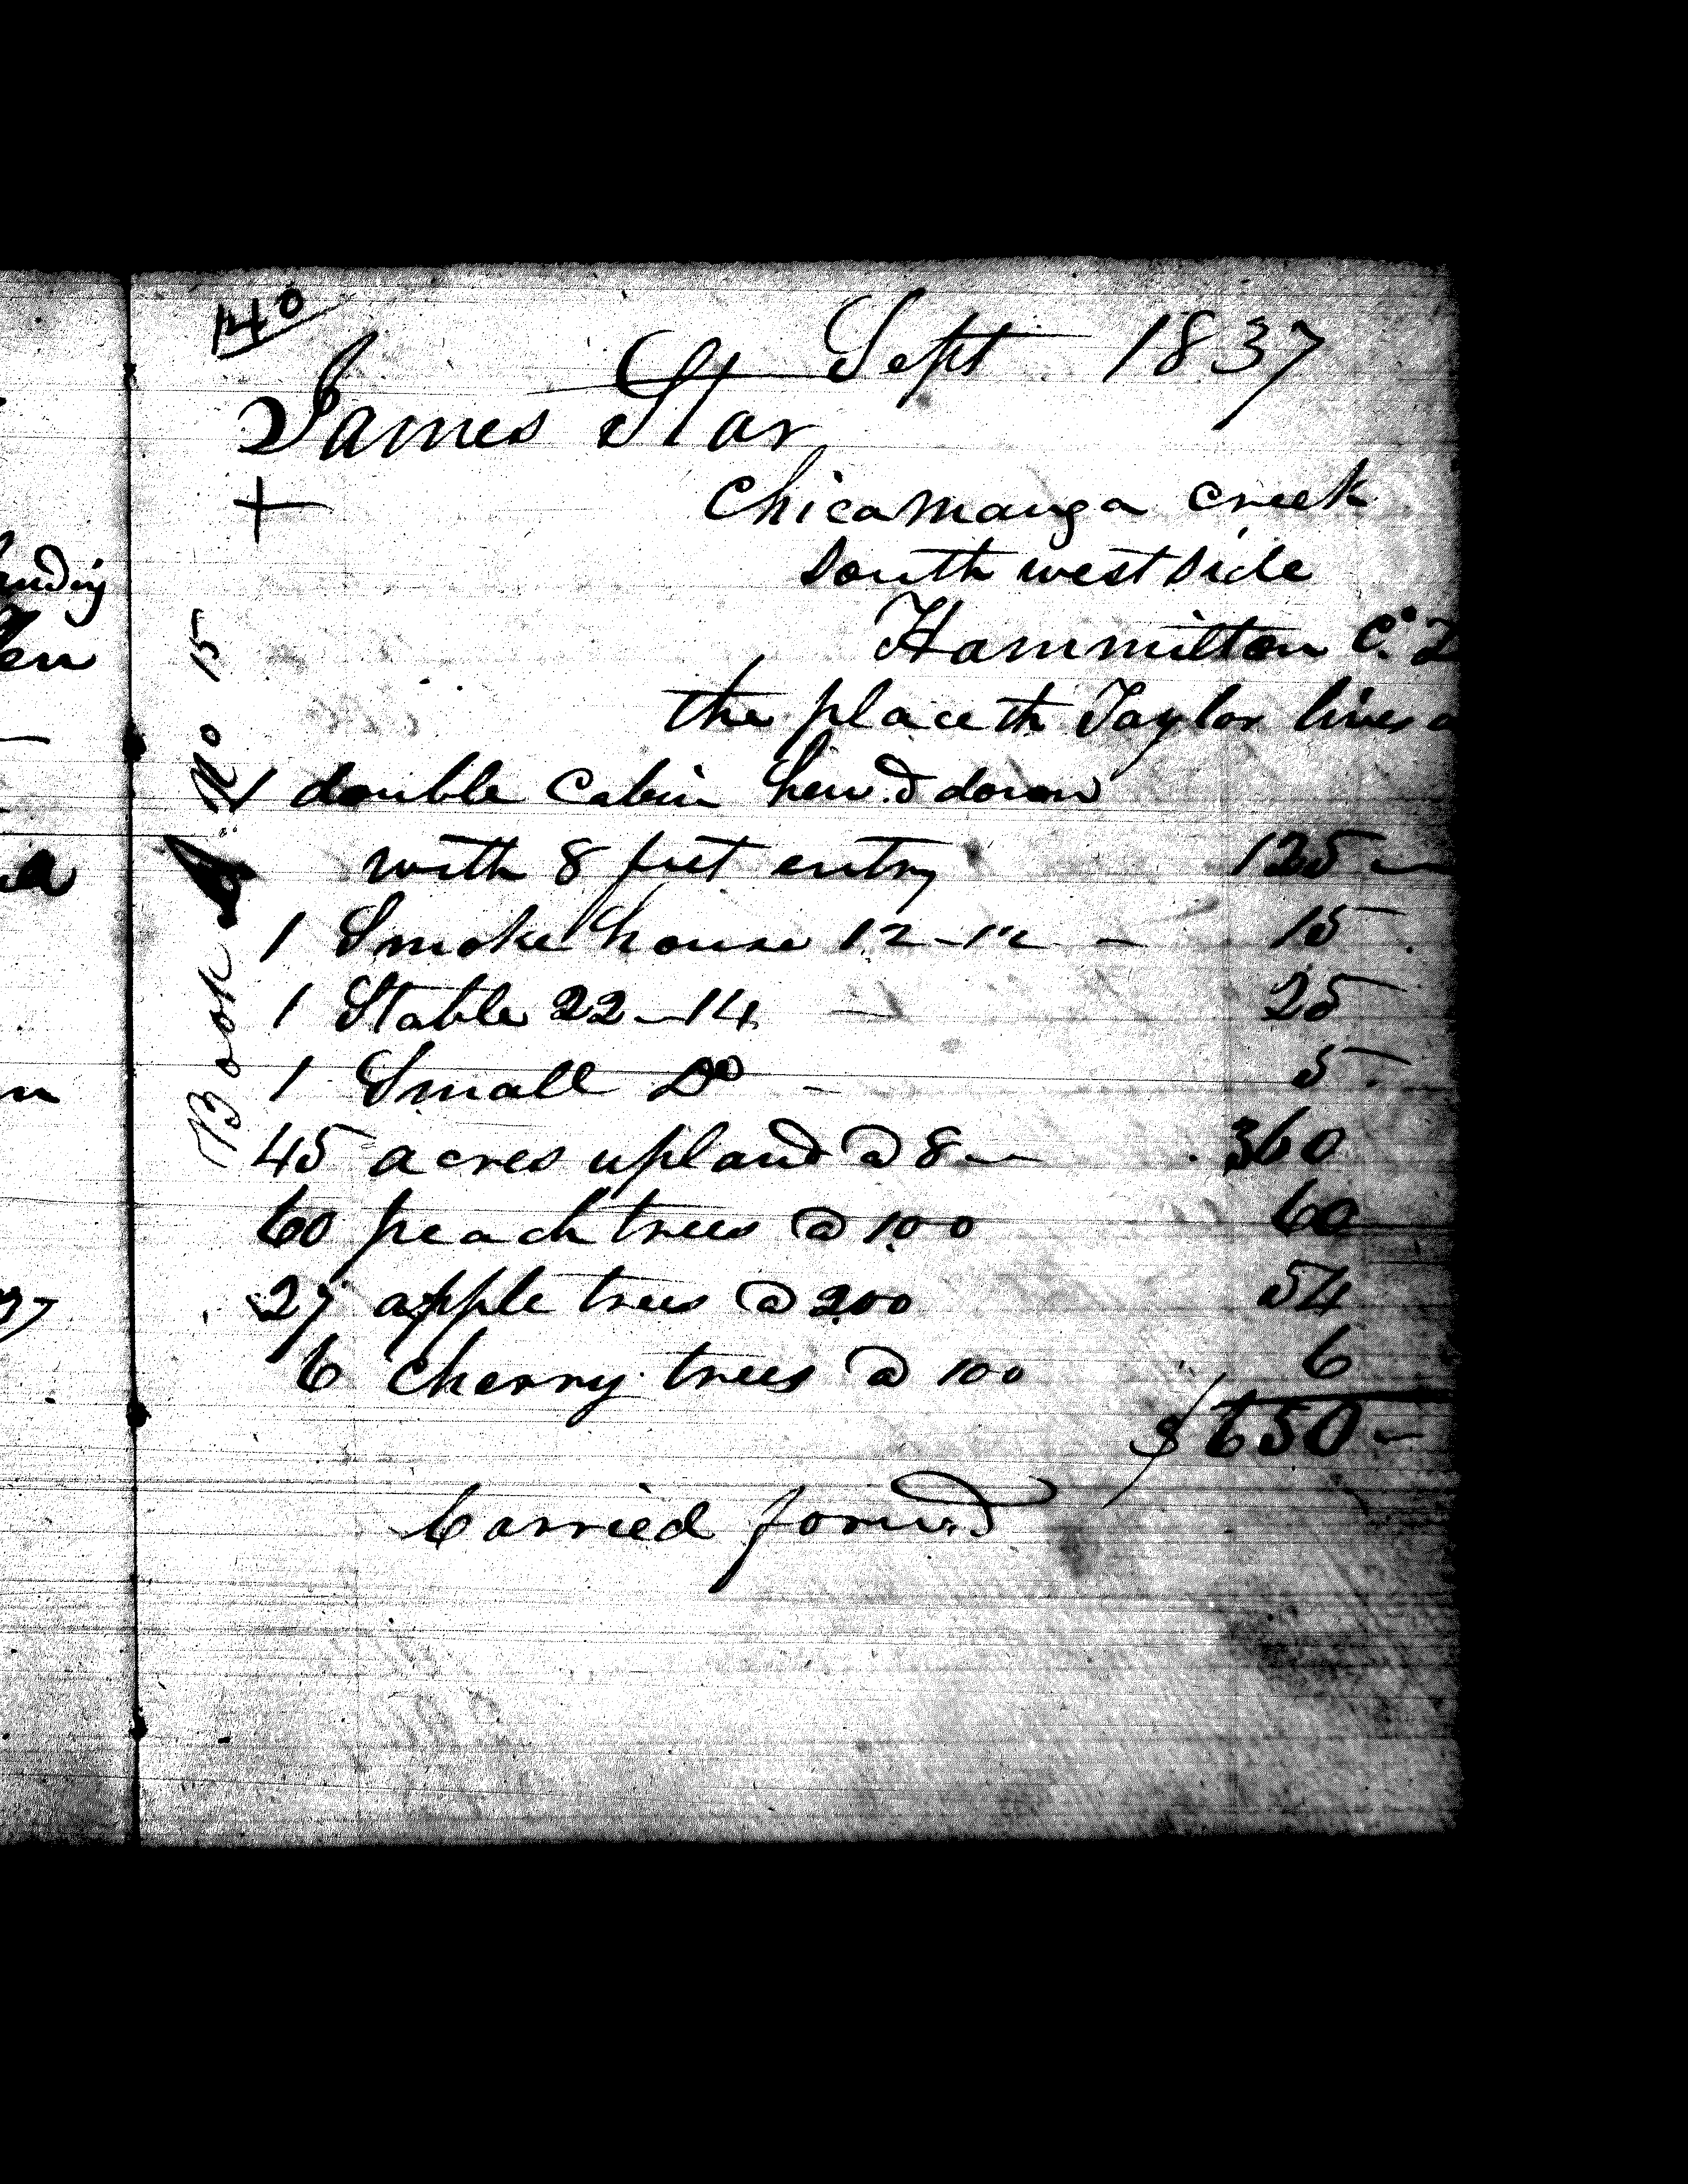 140
Sept 1837
James Star
+
Chicamauga creek
south west side
Hammilton Co. T
the place th Taylor lives
Book A No 15
1 double Cabin hew.d down
with 8 feet entry 125 —
1 Smoke house 12–12 – 15
1 Stable 22–14 – 25
1 Small Do – 5
45 acres upland @ 8 — 360
60 peach trees @ 100 60
27 apple trees @ 200 54
6 cherry trees @ 100 6
$650 –
Carried forwd